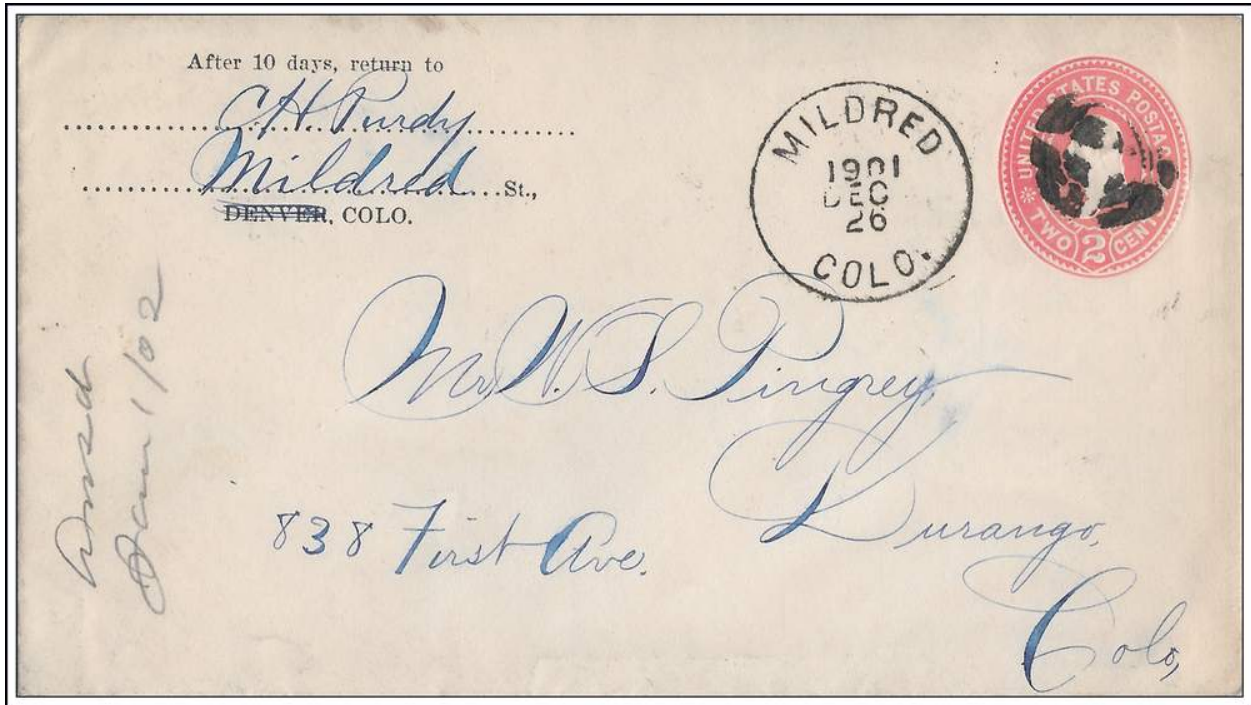 After 10 days, return to
C H Purdy
Mildred St.,
DENVER, COLO.
MILDRED
1901
DEC
26
COLO.
UNITED STATES POSTAGE
TWO 2 CENTS
Mr. W. S. Pingrey,
838 First Ave.
Durango,
Colo,
Ansd
Jan 1/02